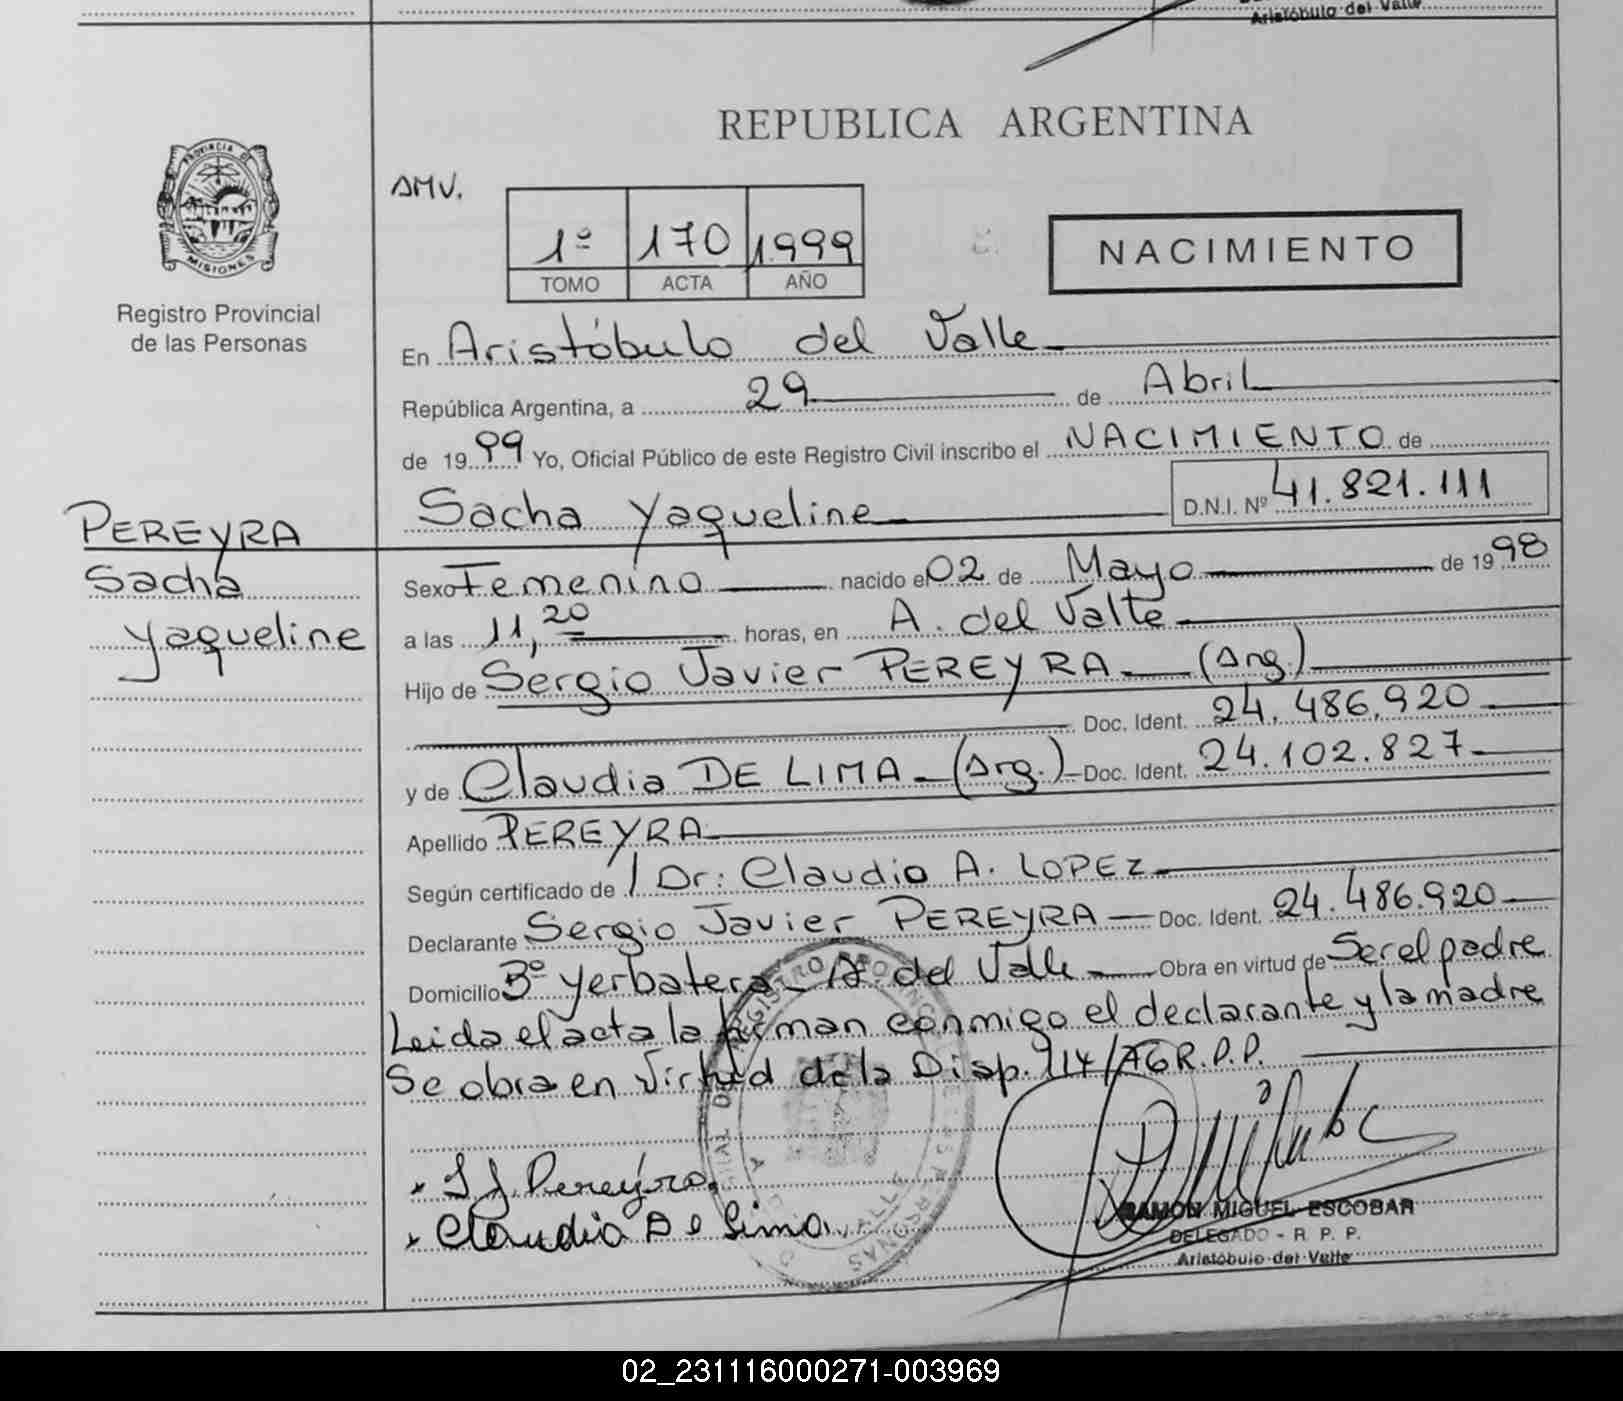 Aristóbulo del Valle
REPUBLICA ARGENTINA
PROVINCIA DE
MISIONES
Registro Provincial
de las Personas
AMV.
1º 170 1.999
TOMO ACTA AÑO
NACIMIENTO
En Aristóbulo del Valle
República Argentina, a 29 de Abril
de 1999 Yo, Oficial Público de este Registro Civil inscribo el NACIMIENTO de
Sacha Yaqueline D.N.I. Nº 41.821.111
PEREYRA
Sacha
Yaqueline
Sexo Femenino nacido el 02 de Mayo de 1998
a las 11,20 horas, en A. del Valle
Hijo de Sergio Javier PEREYRA (Arg.)
Doc. Ident. 24.486.920
y de Claudia DE LIMA (Arg.) Doc. Ident. 24.102.827
Apellido PEREYRA
Según certificado de / Dr: Claudio A. LOPEZ
Declarante Sergio Javier PEREYRA Doc. Ident. 24.486.920
Domicilio Bº Yerbatera - A. del Valle Obra en virtud de Ser el padre
Leida el acta la firman conmigo el declarante y la madre
Se obra en virtud de la Disp. 114/76 R.P.P.
S J Pereyra
Claudia De Lima
RAMON MIGUEL ESCOBAR
DELEGADO - R. P. P.
Aristóbulo del Valle
02_231116000271-003969